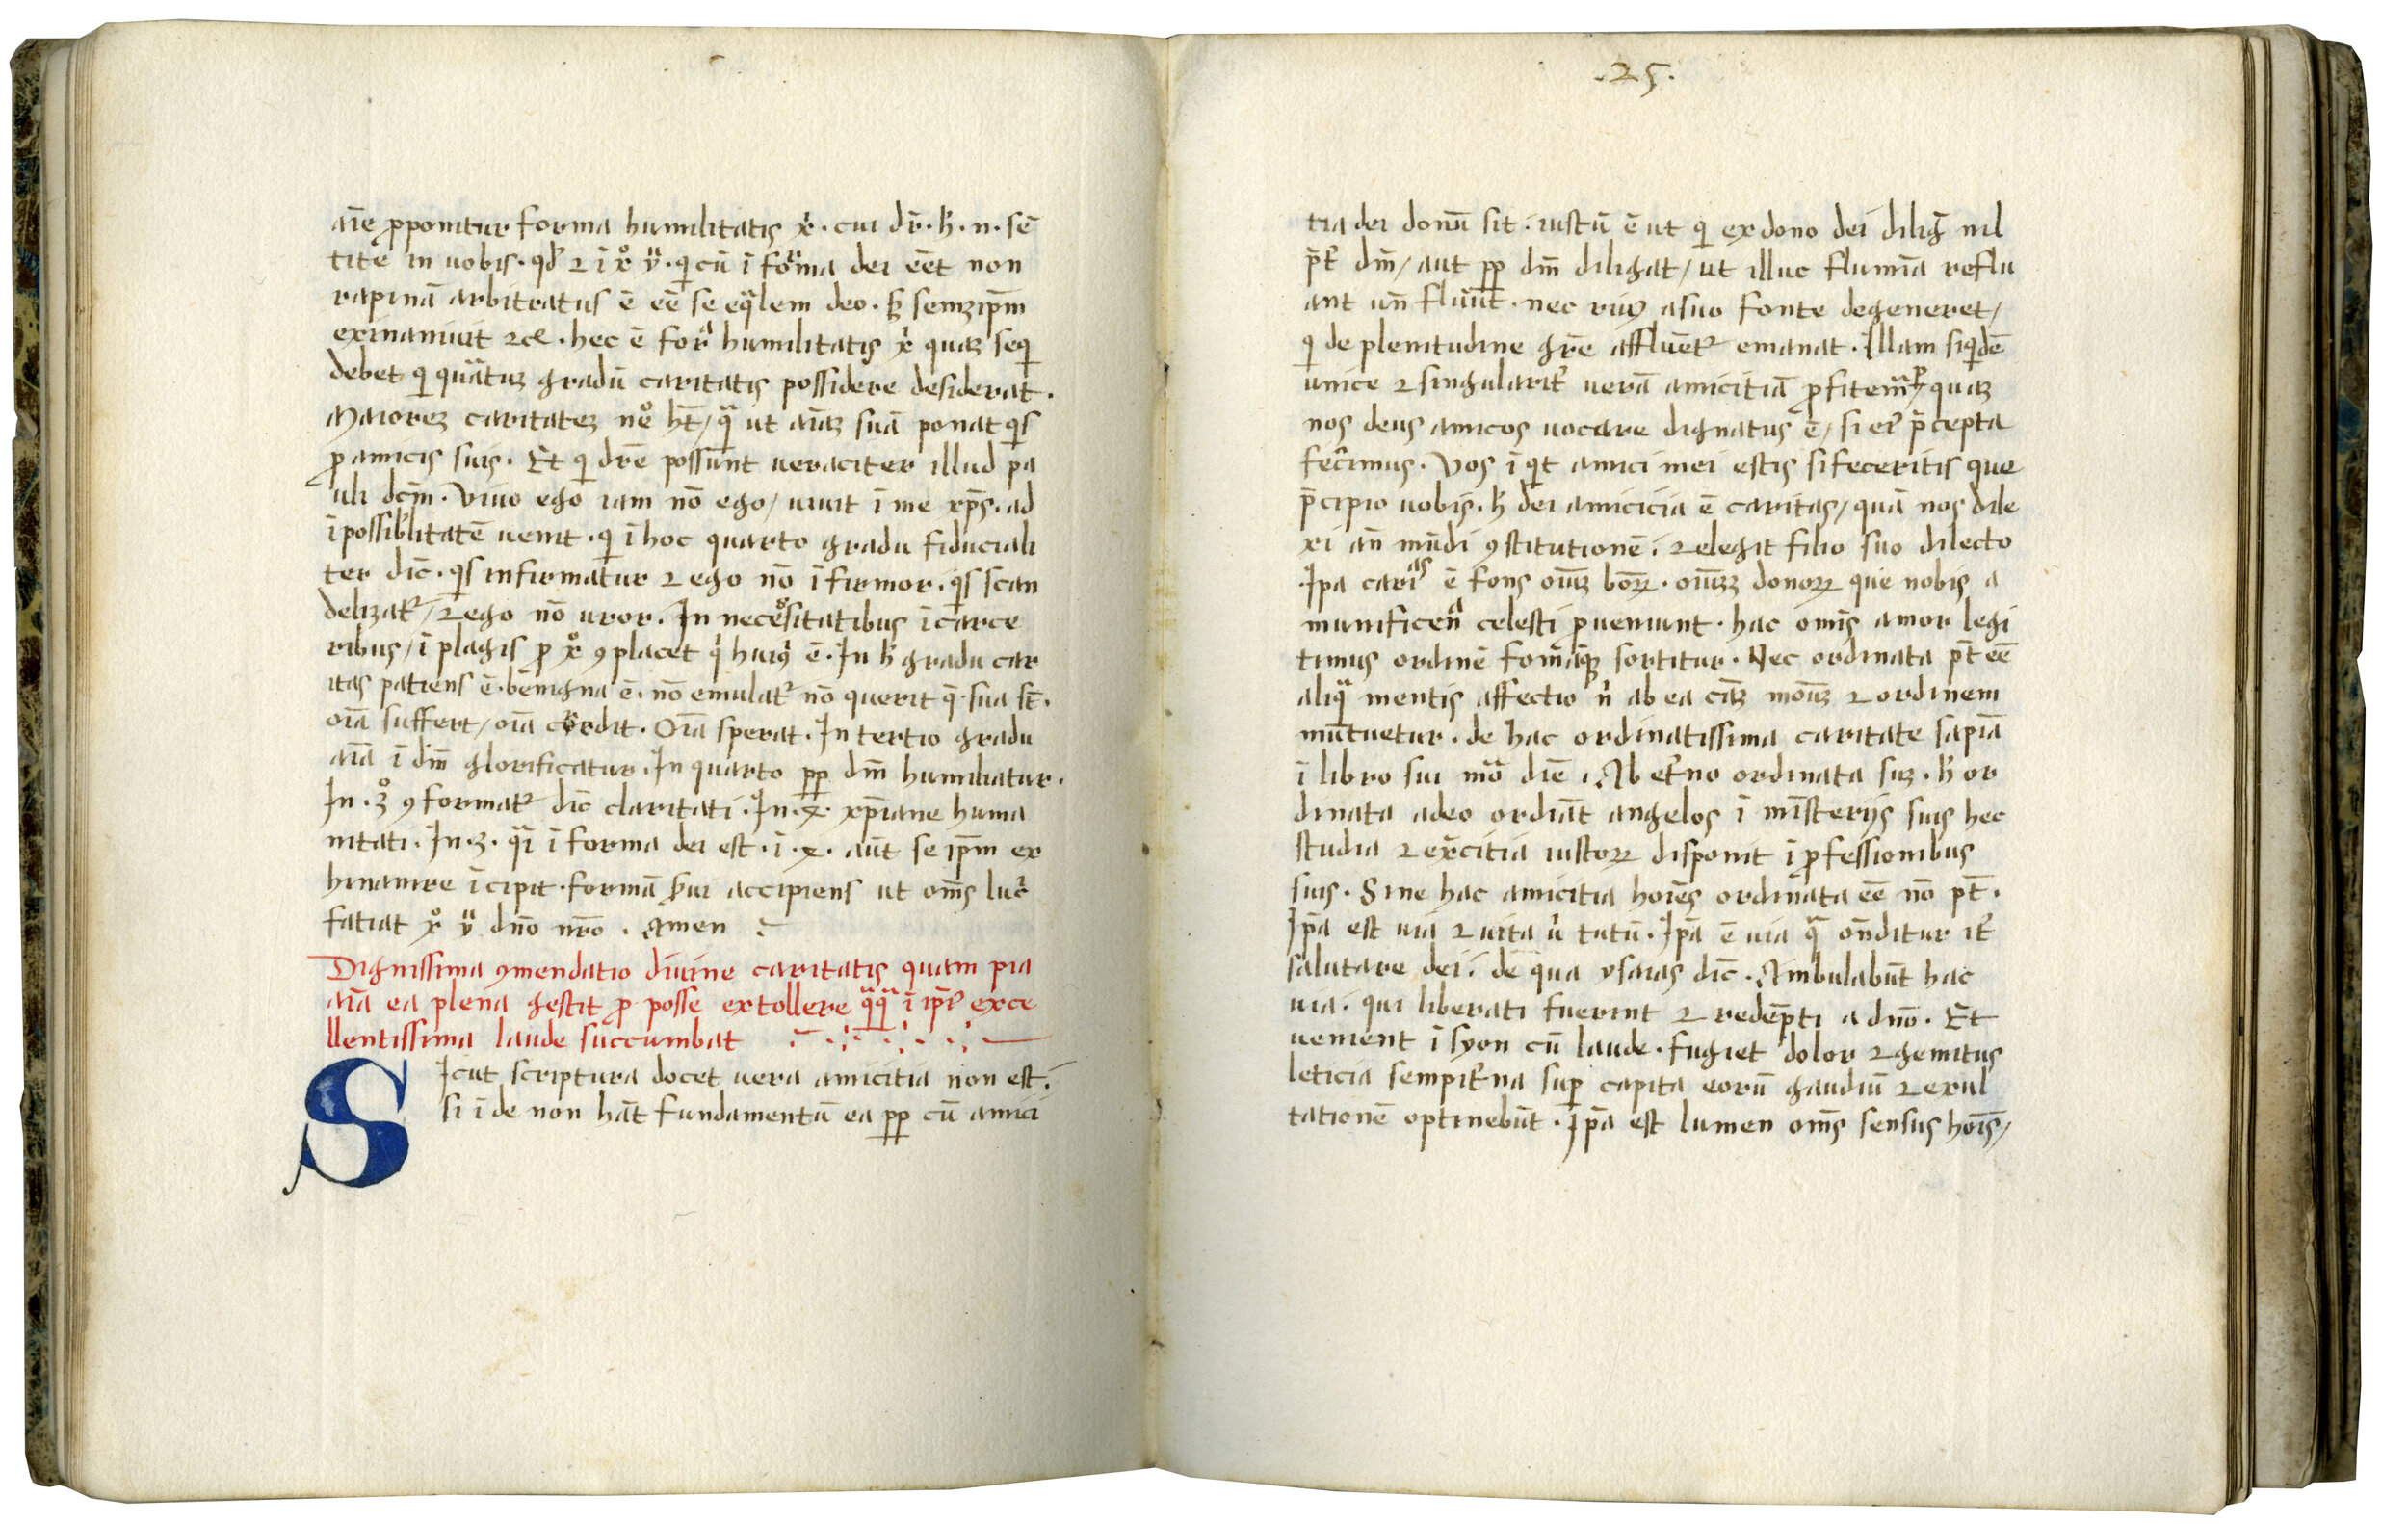 aīe ꝓponitur forma humilitatis xͥ. cui dr̄. h̄. n. sē
tite in uobis. qd̓ ⁊ ī xͦ yͧ. qͥ cū ī forͣma dei eēt non
rapinā arbitratus ē eē se eqͣlem deo. ꝫ semꝫip̄m
exinaniuit ⁊cͤ. hec ē forͣ humilitatis xͥ quaꝫ seqͥ
debet qͥ quͣrtuꝫ gradū caritatis possidere desiderat.
Maioreꝫ caritateꝫ neͦ ht̄/ qͣ ut aīaꝫ suā ponat qͥs
ꝓ amicis suis. Et qͥ dr̄e possunt ueraciter illud pa
uli dcī̄m. Viuo ego iam nō ego/ uiuit ī me xp̄s. ad
īpossibͥlitatē uenit. qͥ ī hoc quarto gradu fiduciali
ter dīc. qͥs infirmatur ⁊ ego nō īfirmor. qͥs scan
delizatᷣ/ ⁊ ego nō uror. In neceͦsitatibus ī carce
ribus/ ī plagis ꝓ xͦ ꝯplacet qͥ huiꝰ ē. In h̄ gradu car
itas patiens ē. bēnigna ē. nō emulatᷣ nō querit q̄ sua st̄.
oīa suffert/ oīa crͤdit. Oīa sperat. In tertio gradu
aīa ī dm̄ glorificatur. In quarto ꝓꝑ dm̄ humiliatur.
In. 3ͦ ꝯformatᷣ dīc claritati. In. 4. xp̄iane huma
nitati. In. 3. qͣi ī forma dei est. ī. 4. aūt se ip̄m ex
hinanire īcipit. formā ẜui accipiens ut om̄s lucͥ
fatiat xͦ yͧ dn̄o nr̄o. Amen
Dignissima ꝯmendatio diuine caritatis quam pia
aīa ea plena gestit ꝓ posse extollere qͣqͣ ī ip̄iᷤ exce
llentissima laude succumbat
Sicut scriptura docet uera amicitia non est.
si īde non hāt fundamentū ea ꝓꝑ cū amici
.25.
tia dei donū sit. iustū ē ut qͥ ex dono dei diligͥ nil
p̄tᷣ dm̄/ aut ꝓꝑ dm̄ diligat/ ut illuc flumīa reflu
ant un̄ fluūt. nec riuꝰ a suo fonte degeneret/
qͥ de plenitudine gr̄e affluētᷣ emanat. Illam siqͥdē
unice ⁊ singularitᷣ uerā amicitiā ꝓfitemͣꝝ/ quaꝫ
nos deus amicos uocare dignatus ē/ si eiᷤ p̄cepta
fecᷣimus. Vos īqͥt amici mei estis si feceritis que
p̄cipio uobis. h̄ dei amicicia ē caritas/ quā nos dile
xi an̄ mūdi ꝯstitutionē. ⁊ elegit filio suo dilecto
Ip̄a cariᵃˢ ē fons oīuꝫ boꝝ. oīuꝫ donoꝝ que nobis a
munificenͣ celesti ꝓueniunt. hac om̄is amor legi
timus ordinē fomāqꝫ sortitur. Nec ordinata pt̄ eē
aliqͣ mentis affectio nͥ ab ea cīaꝫ moūꝫ ⁊ ordinem
mūtuetur. de hac ordinatissima caritate sapīa
ī libro sui mō̄ diē. Ab etᷣno ordinata suꝫ. h̄ or
dinata adeo ordiāt angelos ī mīsterijs suis hec
studia ⁊ exᷣcitia iustoꝝ disponit ī ꝓfessionibus
suis. Sine hac amicitia hoīes ordinata eē nō pt̄.
Ip̄a est uia ⁊ uita uͥtutū. Ip̄a ē uia qͣ on̄ditur itᷣ
salutare dei. de qua ysaias dīc. Ambulabūt hac
uia. qui liberati fuerint ⁊ redēpti a dn̄o. Et
uenient ī syon cū laude. fugiet dolor ⁊ gemitus
leticia sempitᷣna suꝑ capita eorū gaudiū ⁊ exul
tationē optinebūt. Ip̄a est lumen om̄s sensus hoīs/